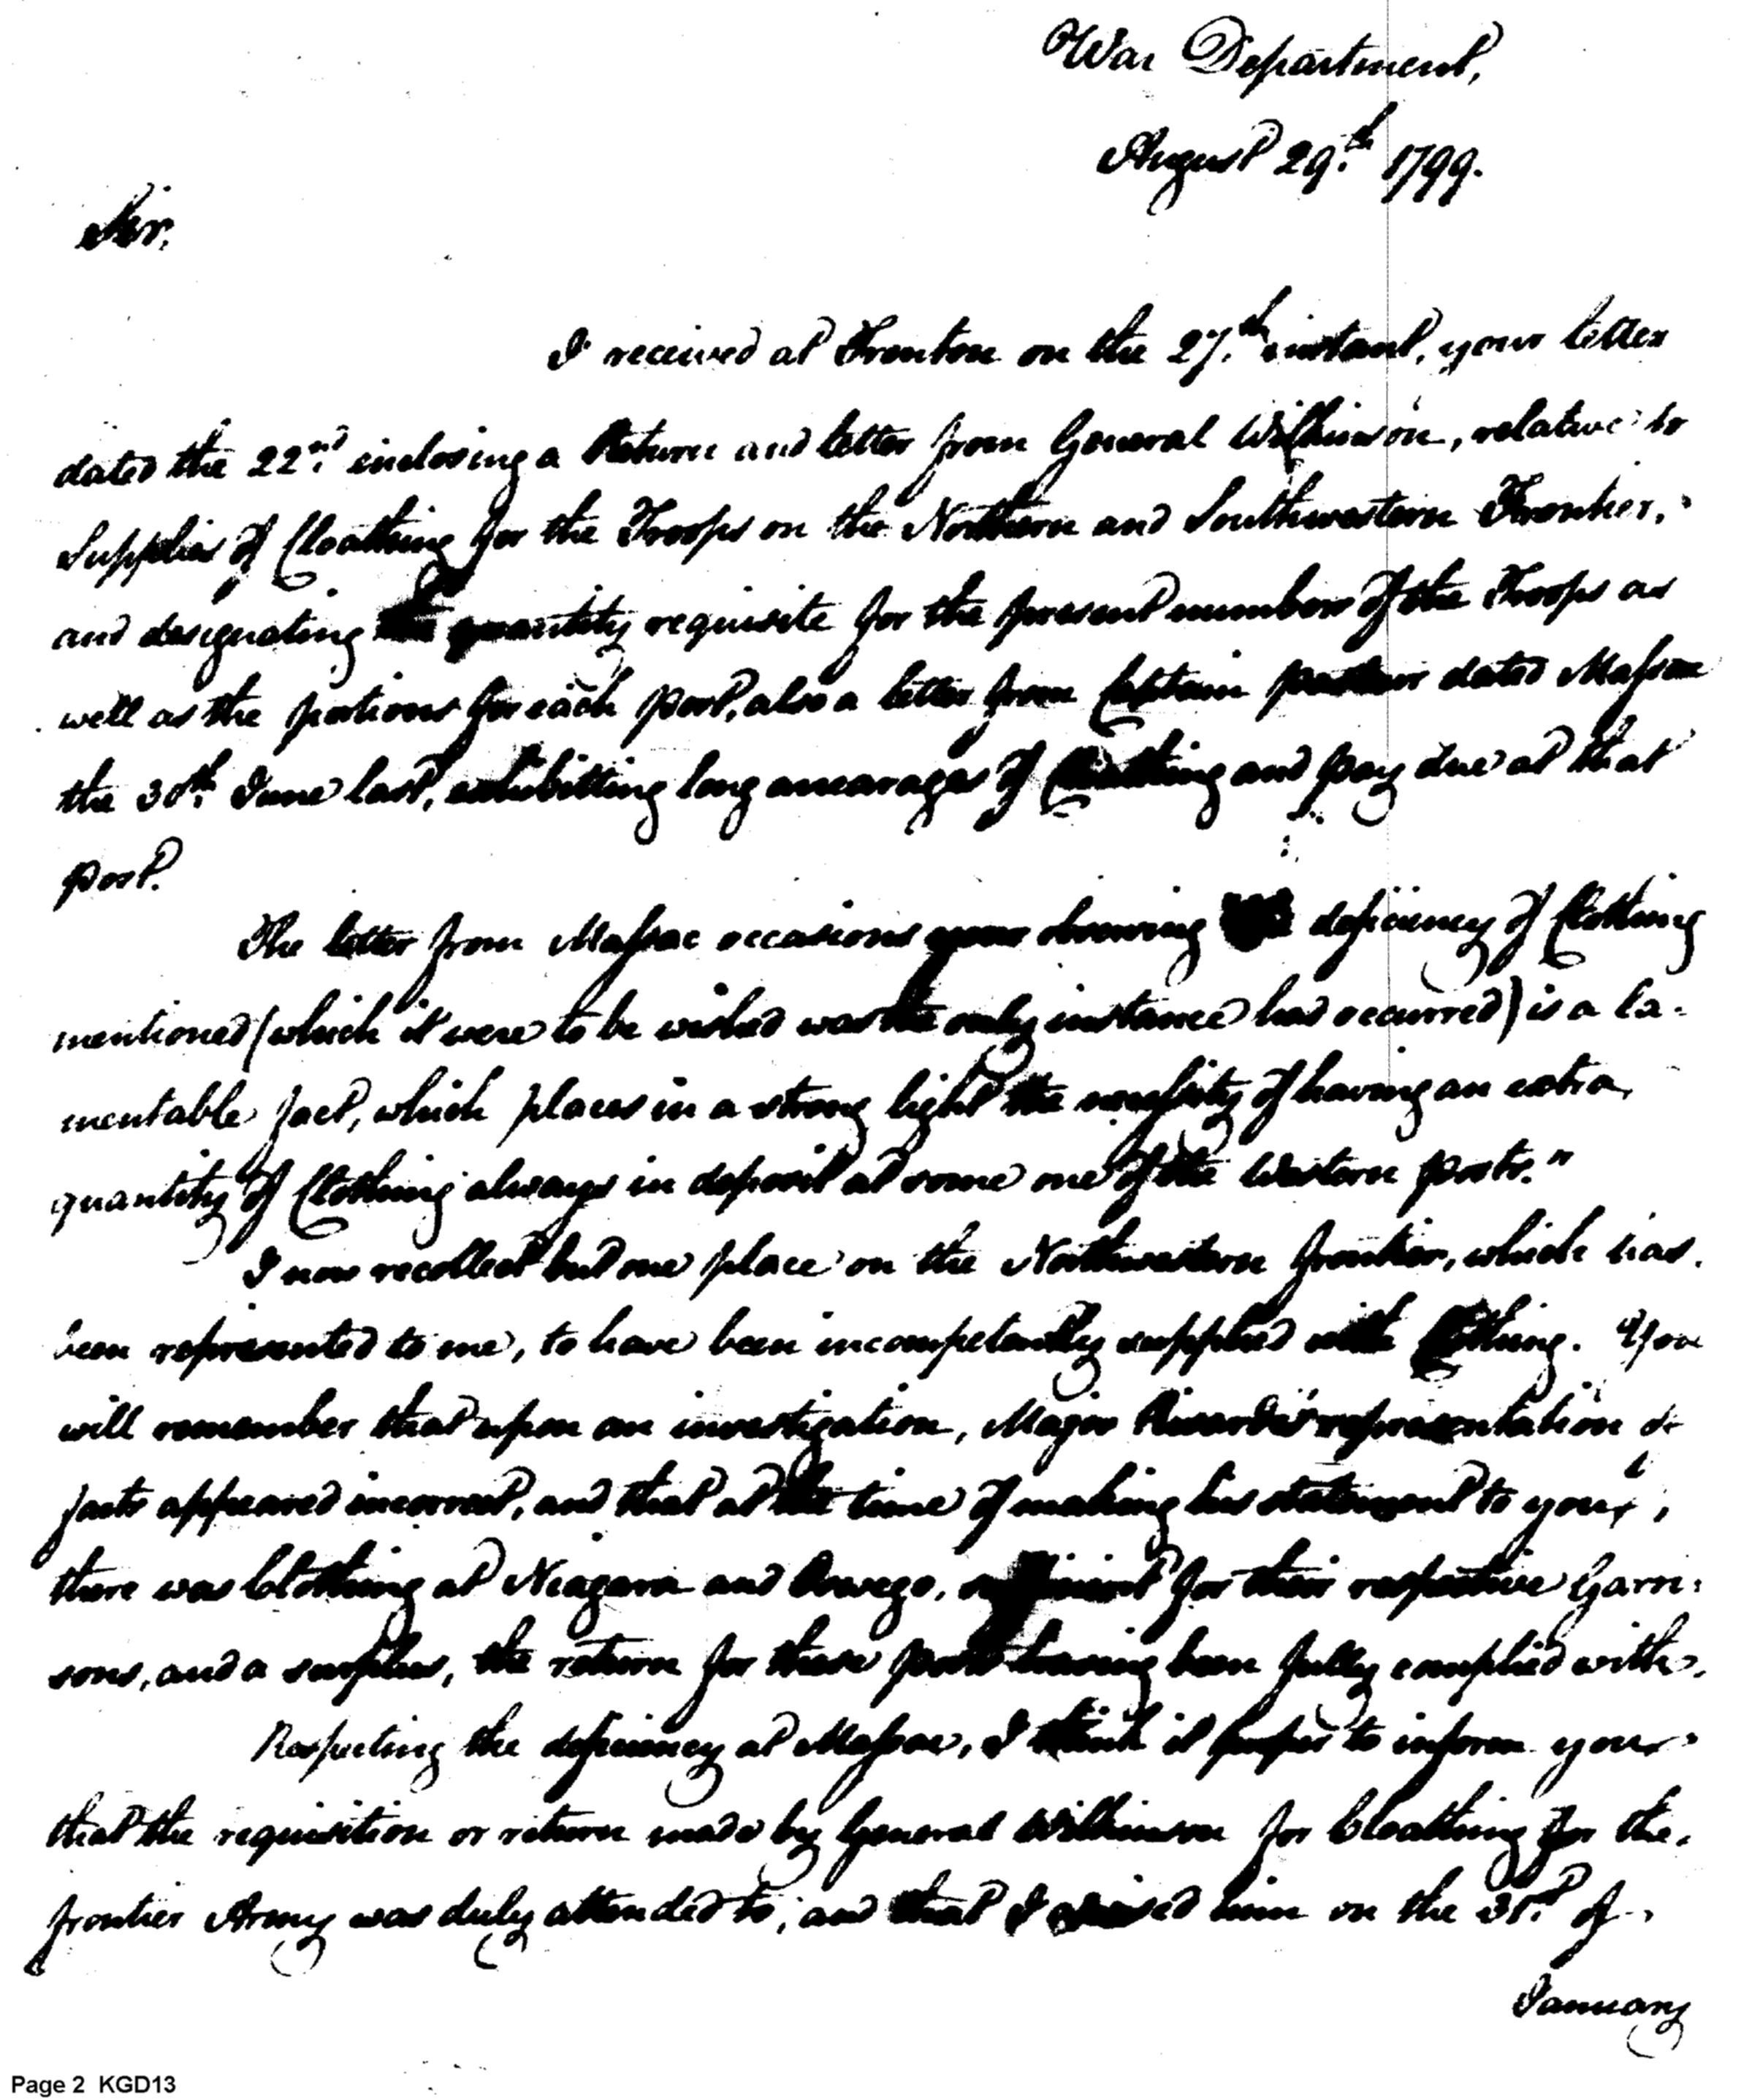 War Department,
August 29th. 1799.
Sir,
I received at Trenton on the 27th. instant, your letter
dated the 22nd. inclosing a Return and letter from General Wilkinson, relative to
Supplies of Cloathing for the Troops on the Northern and Southwestern Frontier,
and designating the quantity requisite for the present numbers of the Troops as
well as the portions for each post, also a letter from Captain dated Massac
the 30th. June last, exhibitting long arrearages of Cloathing and pay due at that
post.
The letter from Massac occasions your deficiency of Clothing
mentioned (which it were to be wished was the only instance has occurred) is a la-
mentable fact, which places in a strong light the necessity of having an extra
quantity of Clothing always in deposit at some one of the Western posts."
I now recollect but one place on the Northwestern frontier, which has
been represented to me, to have been incompetantly supplied with Clothing. You
will remember that upon an investigation, Major Rivardi's representation of
facts appeared incorrect, and that at the time of making his statement to you,
there was Clothing at Niagara and Oswego, sufficient for their respective Garri-
sons, and a surplus, the return for these posts having been fully complied with.
Respecting the deficiency at Massac, I think it proper to inform you
that the requisition or return made by General Wilkinson for Cloathing for the
frontier Army was duly attended to, and that I advised him on the 31st. of
January
Page 2 KGD13